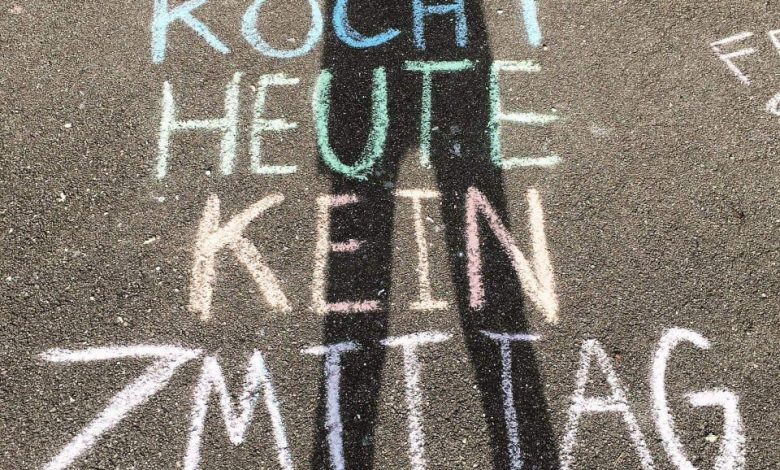 KOCHT
HEUTE
KEIN
ZMITTAG